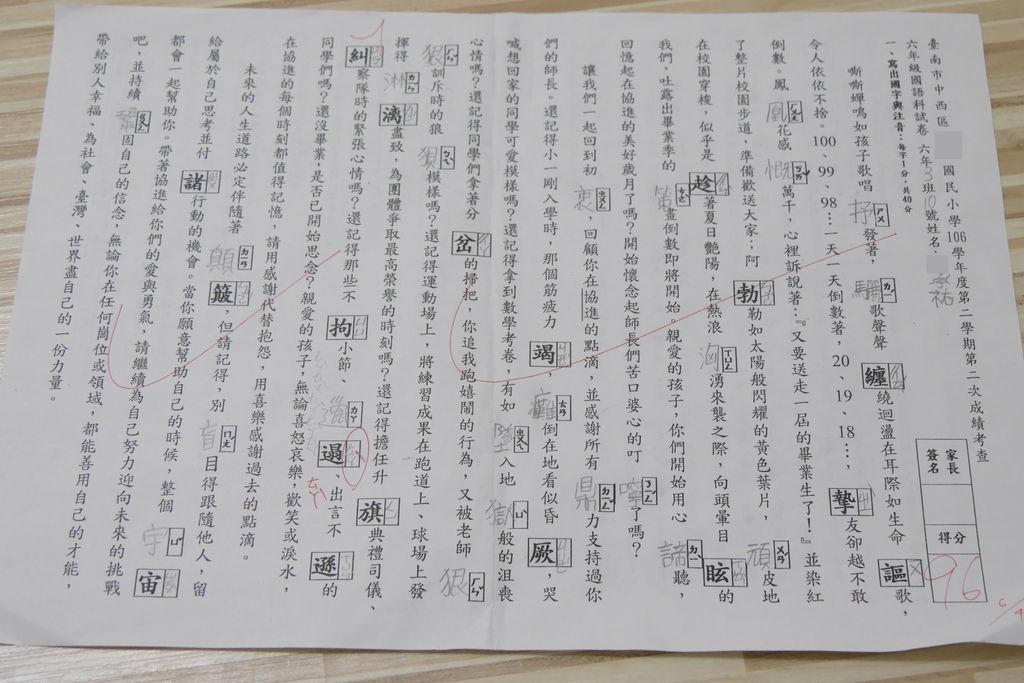 臺南市中西區 國民小學106學年度第二學期第二次成績考查
六年級國語科試卷 六年3班10號姓名: 祐
家長簽名 得分 96
一、寫出國字與注音:每字1分,共40分
嘶嘶蟬鳴如孩子歌唱抒ㄕㄨ發著,驪ㄌㄧˊ歌聲聲纏繞迴盪在耳際如生命謳歌,
令人依依不捨。100、99、98…一天一天倒數著,20、19、18…,摯友卻越不敢
倒數。鳳凰ㄏㄨㄤˊ花感慨ㄎㄞˇ萬千,心裡訴說著:『又要送走一屆的畢業生了!』並染紅
了整片校園步道,準備歡送大家;阿勃勒如太陽般閃耀的黃色葉片,頑ㄨㄢˊ皮地
在校園穿梭,似乎是趁著夏日艷陽,在熱浪洶ㄒㄩㄥ湧來襲之際,向頭暈目眩的
我們,吐露出畢業季的黃畫倒數即將開始。親愛的孩子,你們開始用心諦ㄉㄧˋ聽,
回憶起在協進的美好歲月了嗎?開始懷念起師長們苦口婆心的叮嚀ㄋㄧㄥˊ了嗎?
讓我們一起回到初衷ㄓㄨㄥ,回顧你在協進的點滴,並感謝所有鼎ㄉㄧㄥˇ力支持過你
們的師長。還記得小一剛入學時,那個筋疲力竭,癱ㄊㄢ倒在地看似昏厥,哭
喊想回家的同學可愛模樣嗎?還記得拿到數學考卷,有如墜ㄓㄨㄟˋ入地獄ㄩˋ般的沮喪
心情嗎?還記得同學們拿著分岔的掃把,你追我跑嬉鬧的行為,又被老師狠ㄏㄣˇ
狠ㄏㄣˇ訓斥時的狼狽ㄅㄟˋ模樣嗎?還記得運動場上,將練習成果在跑道上、球場上發
揮得淋ㄌㄧㄣˊ漓盡致,為團體爭取最高榮譽的時刻嗎?還記得擔任升旗典禮司儀、
糾察隊時的緊張心情嗎?還記得那些不拘小節、邋ㄌㄚ遢、出言不遜的
同學們嗎?還沒畢業,是否已開始思念?親愛的孩子,無論喜怒哀樂,歡笑或淚水,
在協進的每個時刻都值得記憶,請用感謝代替抱怨,用喜樂感謝過去的點滴。
未來的人生道路必定伴隨著顛ㄉㄧㄢ簸,但請記得,別盲ㄇㄤˊ目得跟隨他人,留
給屬於自己思考並付諸行動的機會。當你願意幫助自己的時候,整個宇ㄩˇ宙
都會一起幫助你。帶著協進給你們的愛與勇氣,請繼續為自己努力迎向未來的挑戰
吧,並持續鞏ㄍㄨㄥˇ固自己的信念,無論你在任何崗位或領域,都能善用自己的才能,
帶給別人幸福、為社會、臺灣、世界盡自己的一份力量。